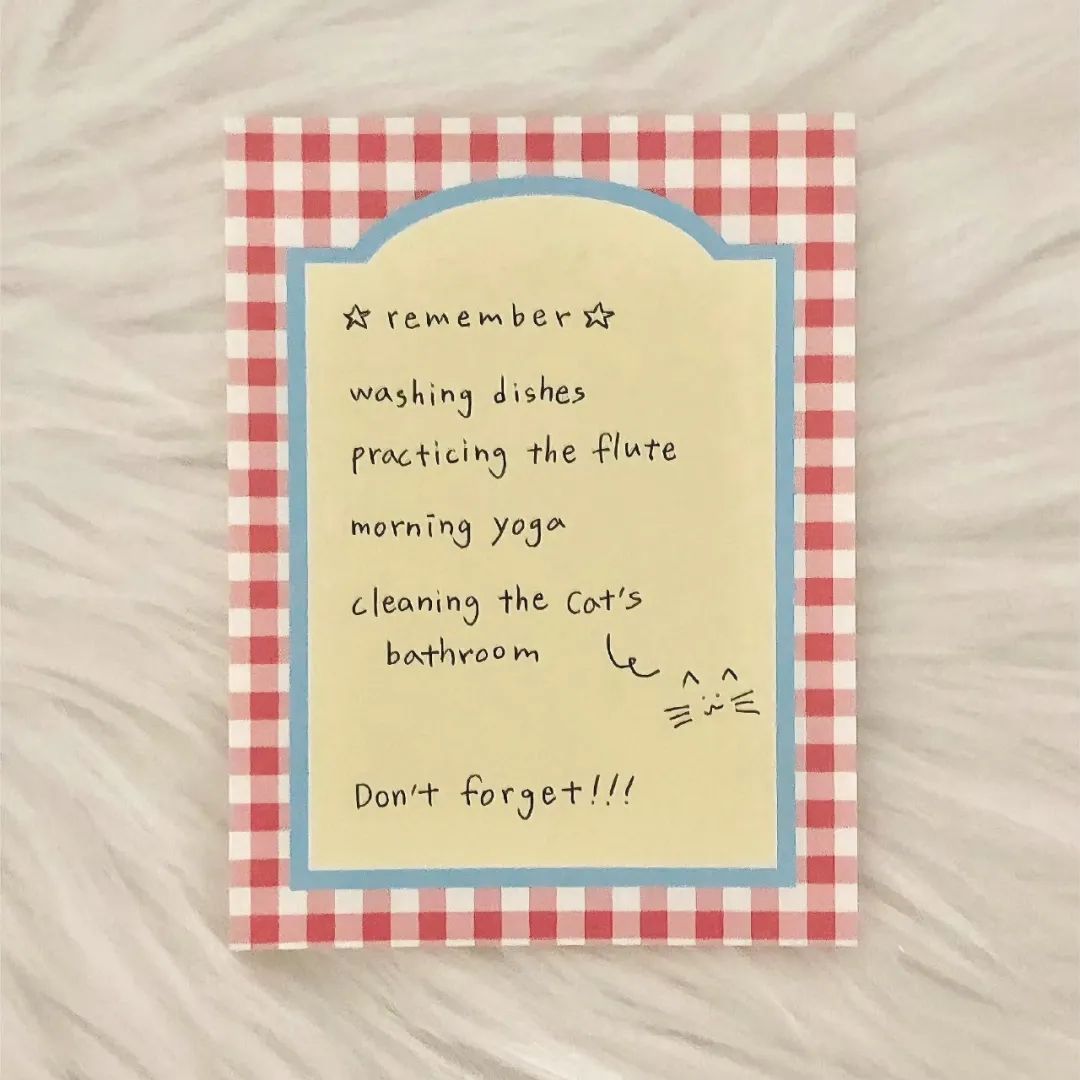 ☆ remember ☆
washing dishes
practicing the flute
morning yoga
cleaning the Cat's
bathroom
Don't forget!!!